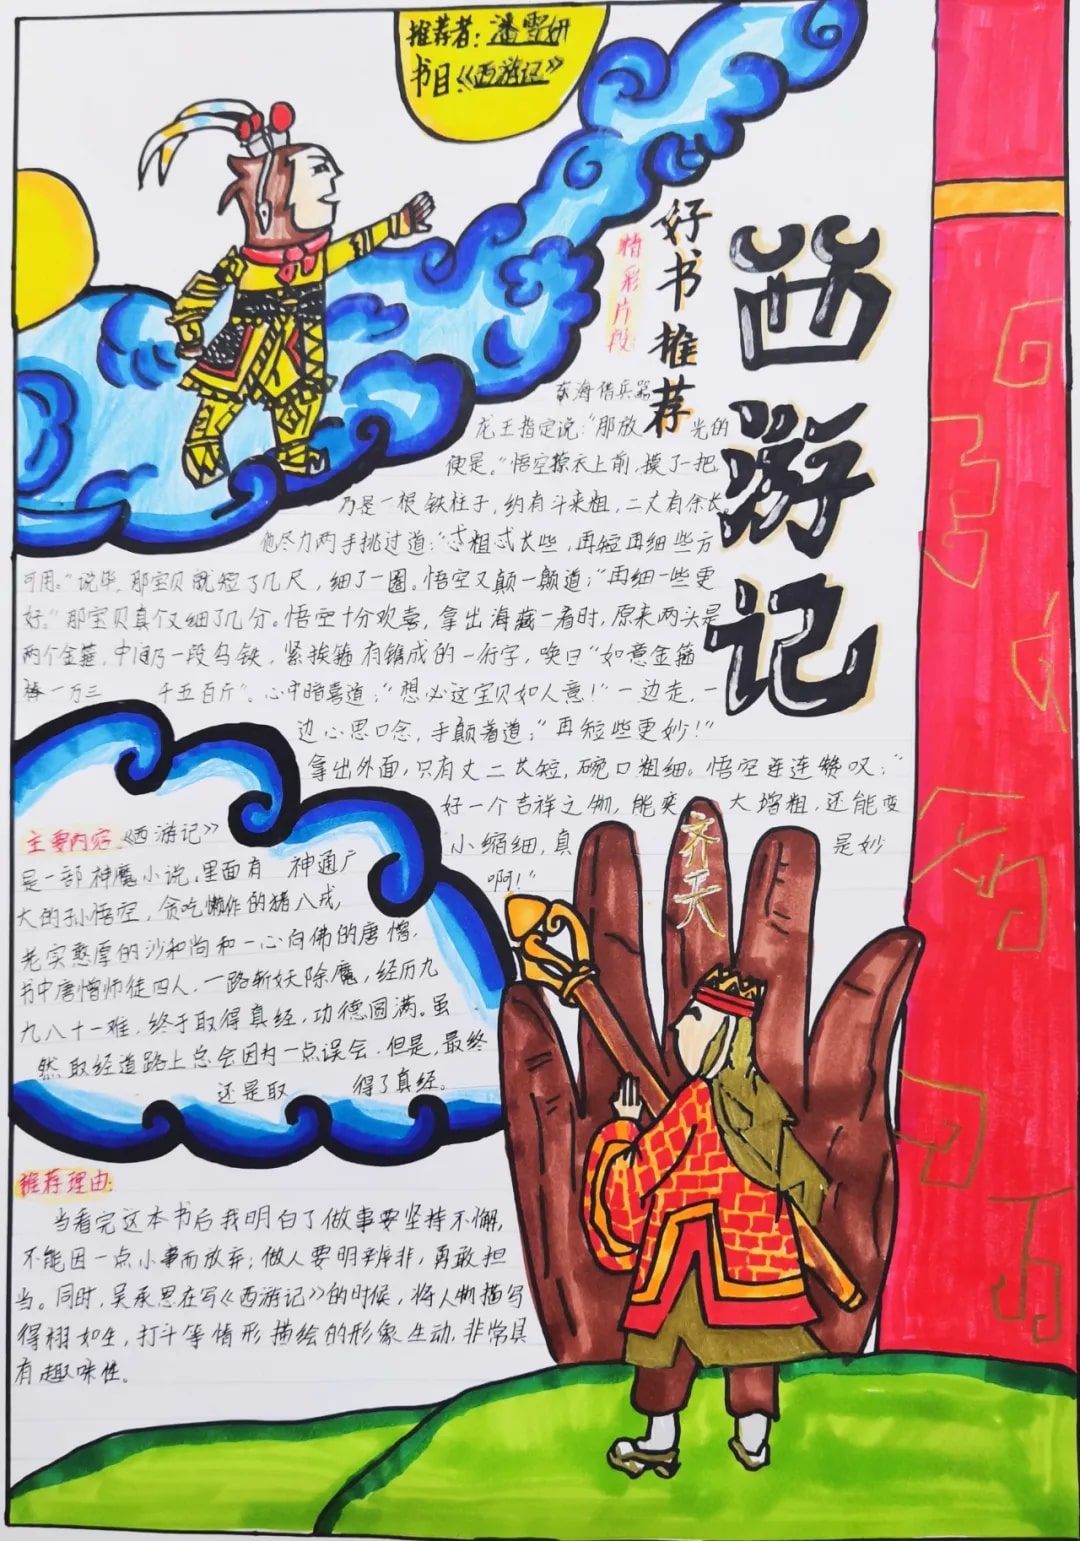 推荐者:潘雪妍
书目:《西游记》
西游记
好书推荐
精彩片段:
东海借兵器
龙王指定说:“那放 光的
便是。”悟空撩衣上前,摸了一把,
乃是一根铁柱子,约有斗来粗,二丈有余长。
他尽力两手挝过道:“忒粗忒长些,再短再细些方
可用。”说毕,那宝贝就短了几尺,细了一圈。悟空又颠一颠道:“再细一些更
好。”那宝贝真个又细了几分。悟空十分欢喜,拿出海藏一看时,原来两头是
两个金箍,中间乃一段乌铁,紧挨箍有镌成的一行字,唤曰“如意金箍
棒一万三 千五百斤”。心中暗喜道:“想必这宝贝如人意!”一边走,一
边心思口念,手颠着道:“再短些更妙!”
拿出外面,只有丈二长短,碗口粗细。悟空连连赞叹:“
好一个吉祥之物,能变 大增粗,还能变
小缩细,真 是妙
啊!”
齐天
主要内容:《西游记》
是一部神魔小说,里面有 神通广
大的孙悟空,贪吃懒作的猪八戒,
老实憨厚的沙和尚和一心向佛的唐僧.
书中唐僧师徒四人,一路斩妖除魔,经历九
九八十一难,终于取得真经,功德圆满。虽
然取经道路上总会因为一点误会.但是,最终
还是取 得了真经。
推荐理由:
当看完这本书后我明白了做事要坚持不懈,
不能因一点小事而放弃;做人要明辨非,勇敢担
当。同时,吴承恩在写《西游记》的时候,将人物描写
得栩如生,打斗等情形描绘的形象生动,非常具
有趣味性。